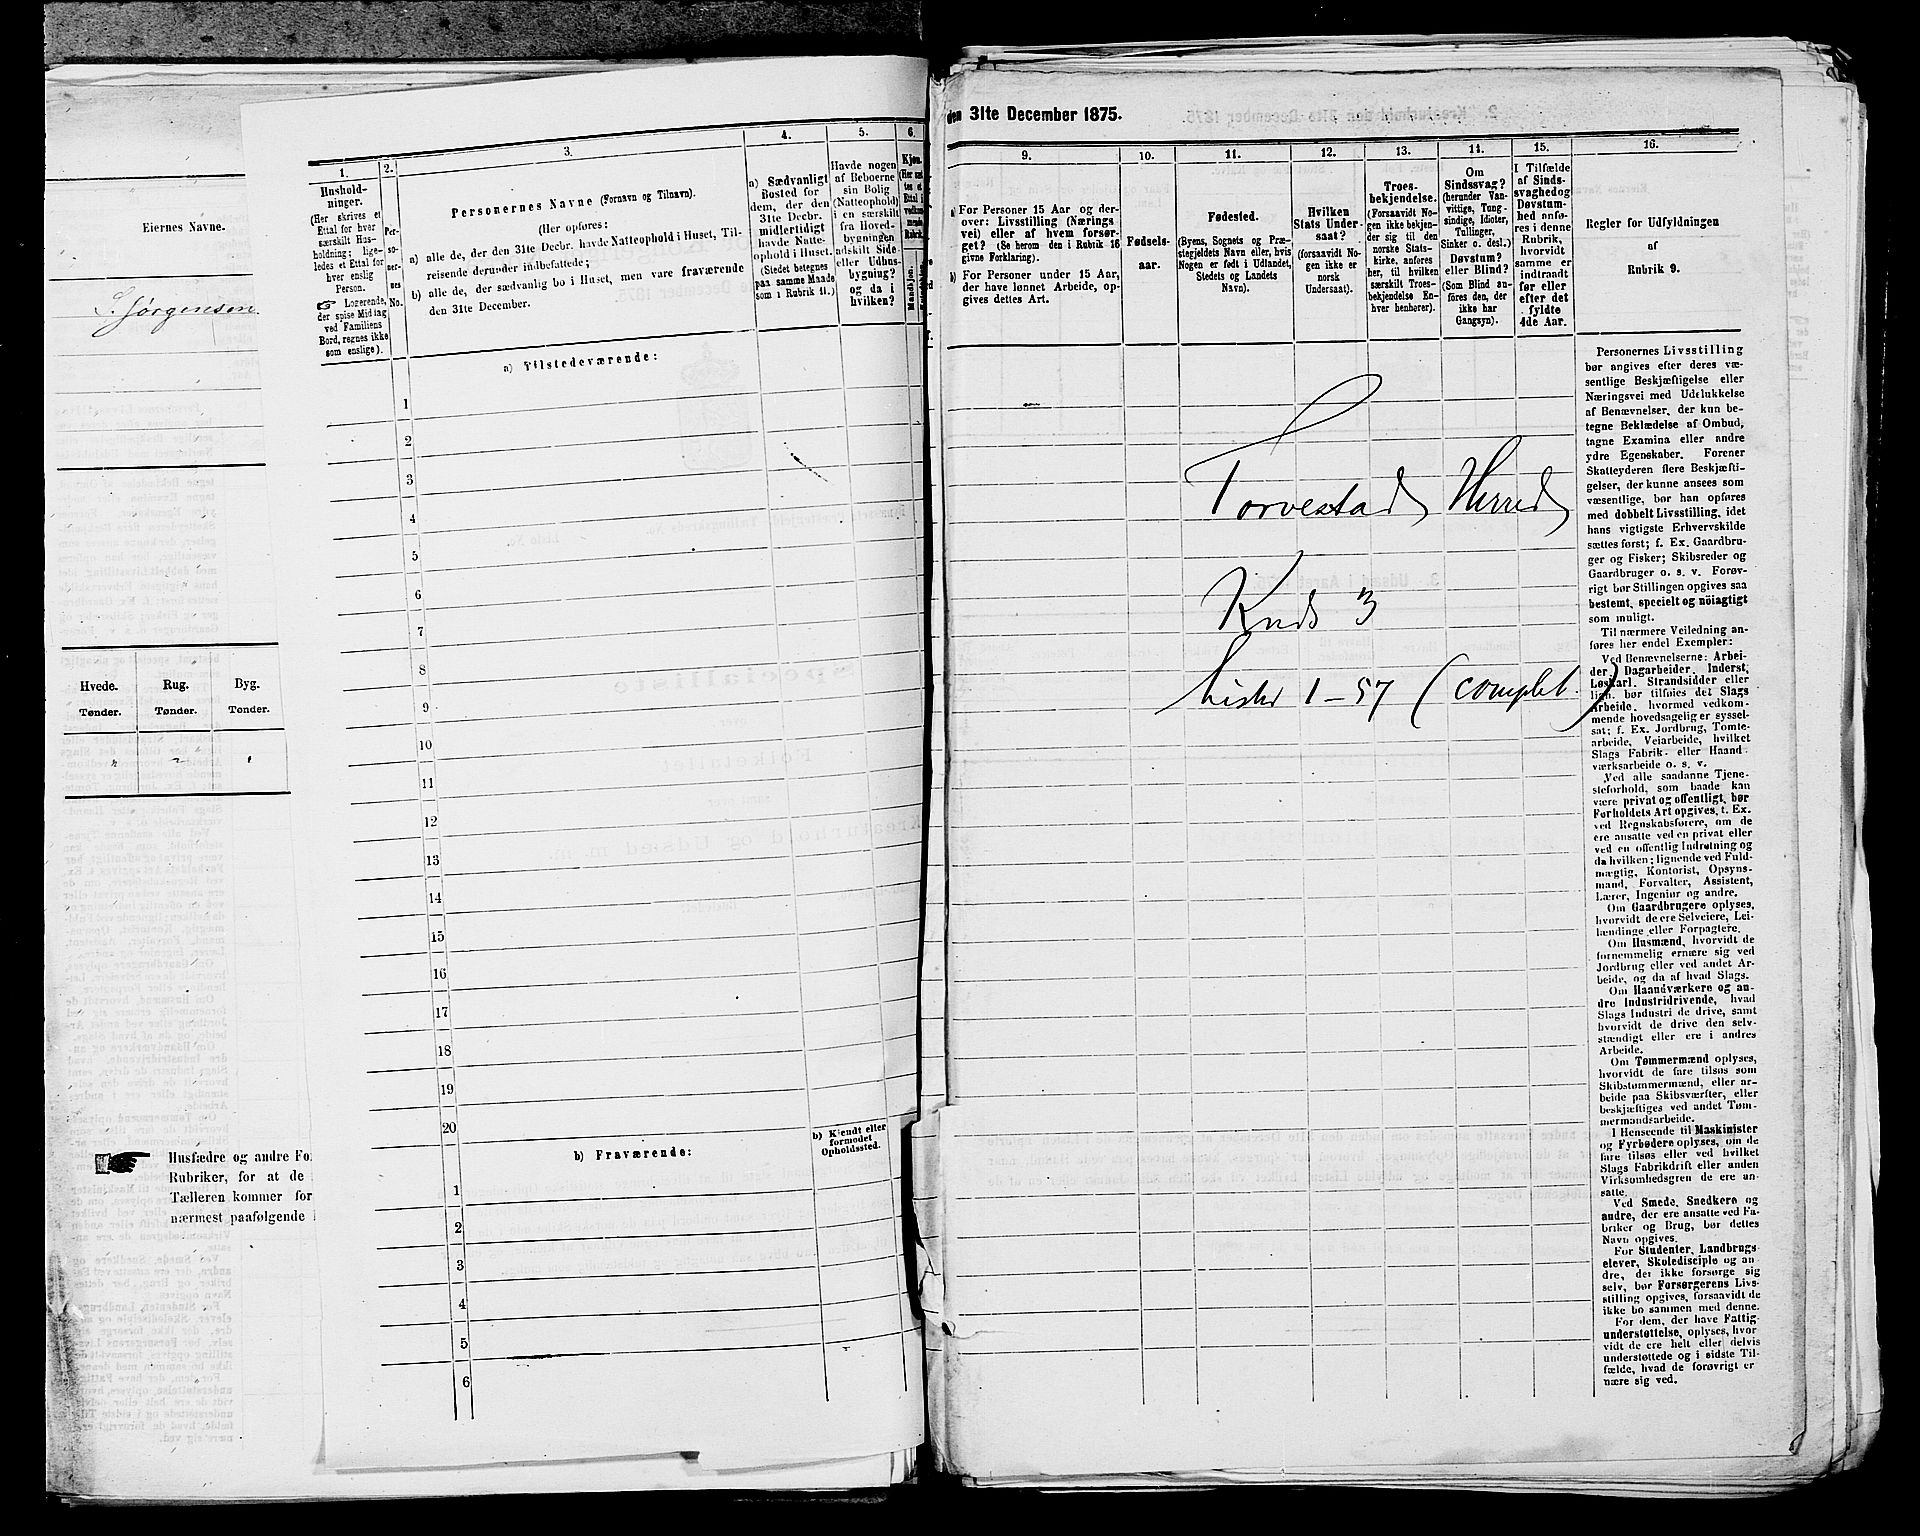 Eiernes Navne.
S. Jørgensen
Hvede. Rug. Byg.
Tønder. Tønder. Tønder.
Husfædre og andre For
Rubriker, for at de
Tælleren kommer for
nærmest paafølgende
1.
Hushold-
ninger.
(Her skrives et
Ettal for hver
særskilt Hus-
holdning; lige-
ledes et Ettal for
hver enslig
Person.
☞ Logerende,
der spise Middag
ved Familiens
Bord, regnes ikke
som enslige).
2.
Per-
so-
ner-
nes
No.
3.
Personernes Navne (Fornavn og Tilnavn).
(Her opføres:
a) alle de, der den 31te Decbr. havde Natteophold i Huset, Til-
reisende derunder indbefattede;
b) alle de, der sædvanlig bo i Huset, men vare fraværende
den 31te December.
4.
a) Sædvanligt
Bosted for
dem, der den
31te Decbr.
midlertidigt
havde Natte-
ophold i Huset.
(Stedet betegnes
paa samme Maade
som i Rubrik 11.)
5.
Havde nogen
af Beboerne
sin Bolig
(Natteophold)
i en særskilt
fra Hoved-
bygningen
adskilt Side-
eller Udhus-
bygning?
og da i
hvilken?
6.
Kjøn.
(Her sæt-
tes et
Ettal i
vedkom-
mende
Rubrik.
Mandkjøn.
a) Tilstedeværende:
1
2
3
4
5
6
7
8
9
10
11
12
13
14
15
16
17
18
19
20
b) Fraværende:
b) Kjendt eller
formodet
Opholdssted.
1
2
3
4
5
6
den 31te December 1875.
9.
a) For Personer 15 Aar og der-
over: Livsstilling (Nærings
vei) eller af hvem forsør-
get? (Se herom den i Rubrik 16
givne Forklaring).
b) For Personer under 15 Aar,
der have lønnet Arbeide, op-
gives dettes Art.
10.
Fødsels-
aar.
11.
Fødested.
(Byens, Sognets og Præ-
stegjeldets Navn eller, hvis
Nogen er født i Udlandet,
Stedets og Landets
Navn).
12.
Hvilken
Stats Under-
saat?
(forsaavidt No-
gen ikke er
norsk
Undersaat).
13.
Troes-
bekjendelse.
(Forsaavidt No-
gen ikke bekjen-
der sig til den
norske Stats-
kirke, anføres
her, til hvilken
særskilt Troes-
bekjendelse En-
hver henhører).
14.
Om
Sindssvag?
(herunder Van-
vittige, Tung-
sindige, Idioter,
Tullinger,
Sinker o. desl.)
Døvstum?
eller Blind?
(Som Blind an-
føres den, der
ikke har
Gangsyn).
15.
I Tilfælde
af Sinds-
svaghed og
Døvstum-
hed anfø-
res i denne
Rubrik,
hvorvidt
samme er
indtraadt
før eller
efter det
fyldte
4de Aar.
16.
Regler for Udfyldningen
af
Rubrik 9.
Torvestad Herred
Kreds 3
Lister 1-57 (complet.)
Personernes Livsstilling
bør angives efter deres væ-
sentlige Beskjæftigelse eller
Næringsvei med Udelukkelse
af Benævnelser, der kun be-
tegne Beklædelse af Ombud,
tagne Examina eller andre
ydre Egenskaber. Forener
Skatteyderen flere Beskjæfti-
gelser, der kunne ansees som
væsentlige, bør han opføres
med dobbelt Livsstilling, idet
hans vigtigste Erhvervskilde
sættes først; f. Ex. Gaardbru-
ger og Fisker; Skibsreder og
Gaardbruger o. s. v. Forøv-
rigt bør Stillingen opgives saa
bestemt, specielt og nöiagtigt
som muligt.
Til nærmere Veiledning an-
føres her endel Exempler:
Ved Benævnelserne: Arbei-
der, Dagarbeider, Inderst,
Løskarl, Strandsidder eller
lign. bør tilføies det Slags
Arbeide, hvormed vedkom-
mende hovedsagelig er syssel-
sat; f. Ex. Jordbrug, Tomte-
arbeide, Veiarbeide, hvilket
Slags Fabrik- eller Haand-
værksarbeide o. s. v.
Ved alle saadanne Tjene-
steforhold, som baade kan
være privat og offentligt, bør
Forholdets Art opgives, t. Ex.
ved Regnskabsførere, om de
ere ansatte ved en privat eller
ved en offentlig Indretning og
da hvilken; lignende ved Fuld-
mægtig, Kontorist, Opsyns-
mand, Forvalter, Assistent,
Lærer, Ingeniør og andre.
Om Gaardbrugere oplyses,
hvorvidt de ere Selveiere, Lei-
lændinge eller Forpagtere.
Om Husmænd, hvorvidt de
fornemmelig ernære sig ved
Jordbrug eller ved andet Ar-
beide, og da af hvad Slags.
Om Haandværkere og an-
dre Industridrivende, hvad
Slags Industri de drive, samt
hvorvidt de drive den selv-
stændigt eller ere i andres
Arbeide.
Om Tømmermænd oplyses,
hvorvidt de fare tilsøs som
Skibstømmermænd, eller ar-
beide paa Skibsværfter, eller
beskjæftiges ved andet Tøm-
mermandsarbeide.
I Henseende til Maskinister
og Fyrbødere oplyses, om de
fare tilsøs eller ved hvilket
Slags Fabrikdrift eller anden
Virksomhedsgren de ere an-
satte.
Ved Smede, Snedkere og
andre, der ere ansatte ved Fa-
briker og Brug, bør dettes
Navn opgives.
For Studenter, Landbrugs-
elever, Skoledisciple og an-
dre, der ikke forsørge sig
selv, bør Forsørgerens Livs-
stilling opgives, forsaavidt de
ikke bo sammen med denne.
For dem, der have Fattig-
understøttelse, oplyses, hvor
vidt de ere helt eller delvis
understøttede og i sidste Til-
fælde, hvad de forøvrigt er
nære sig ved.